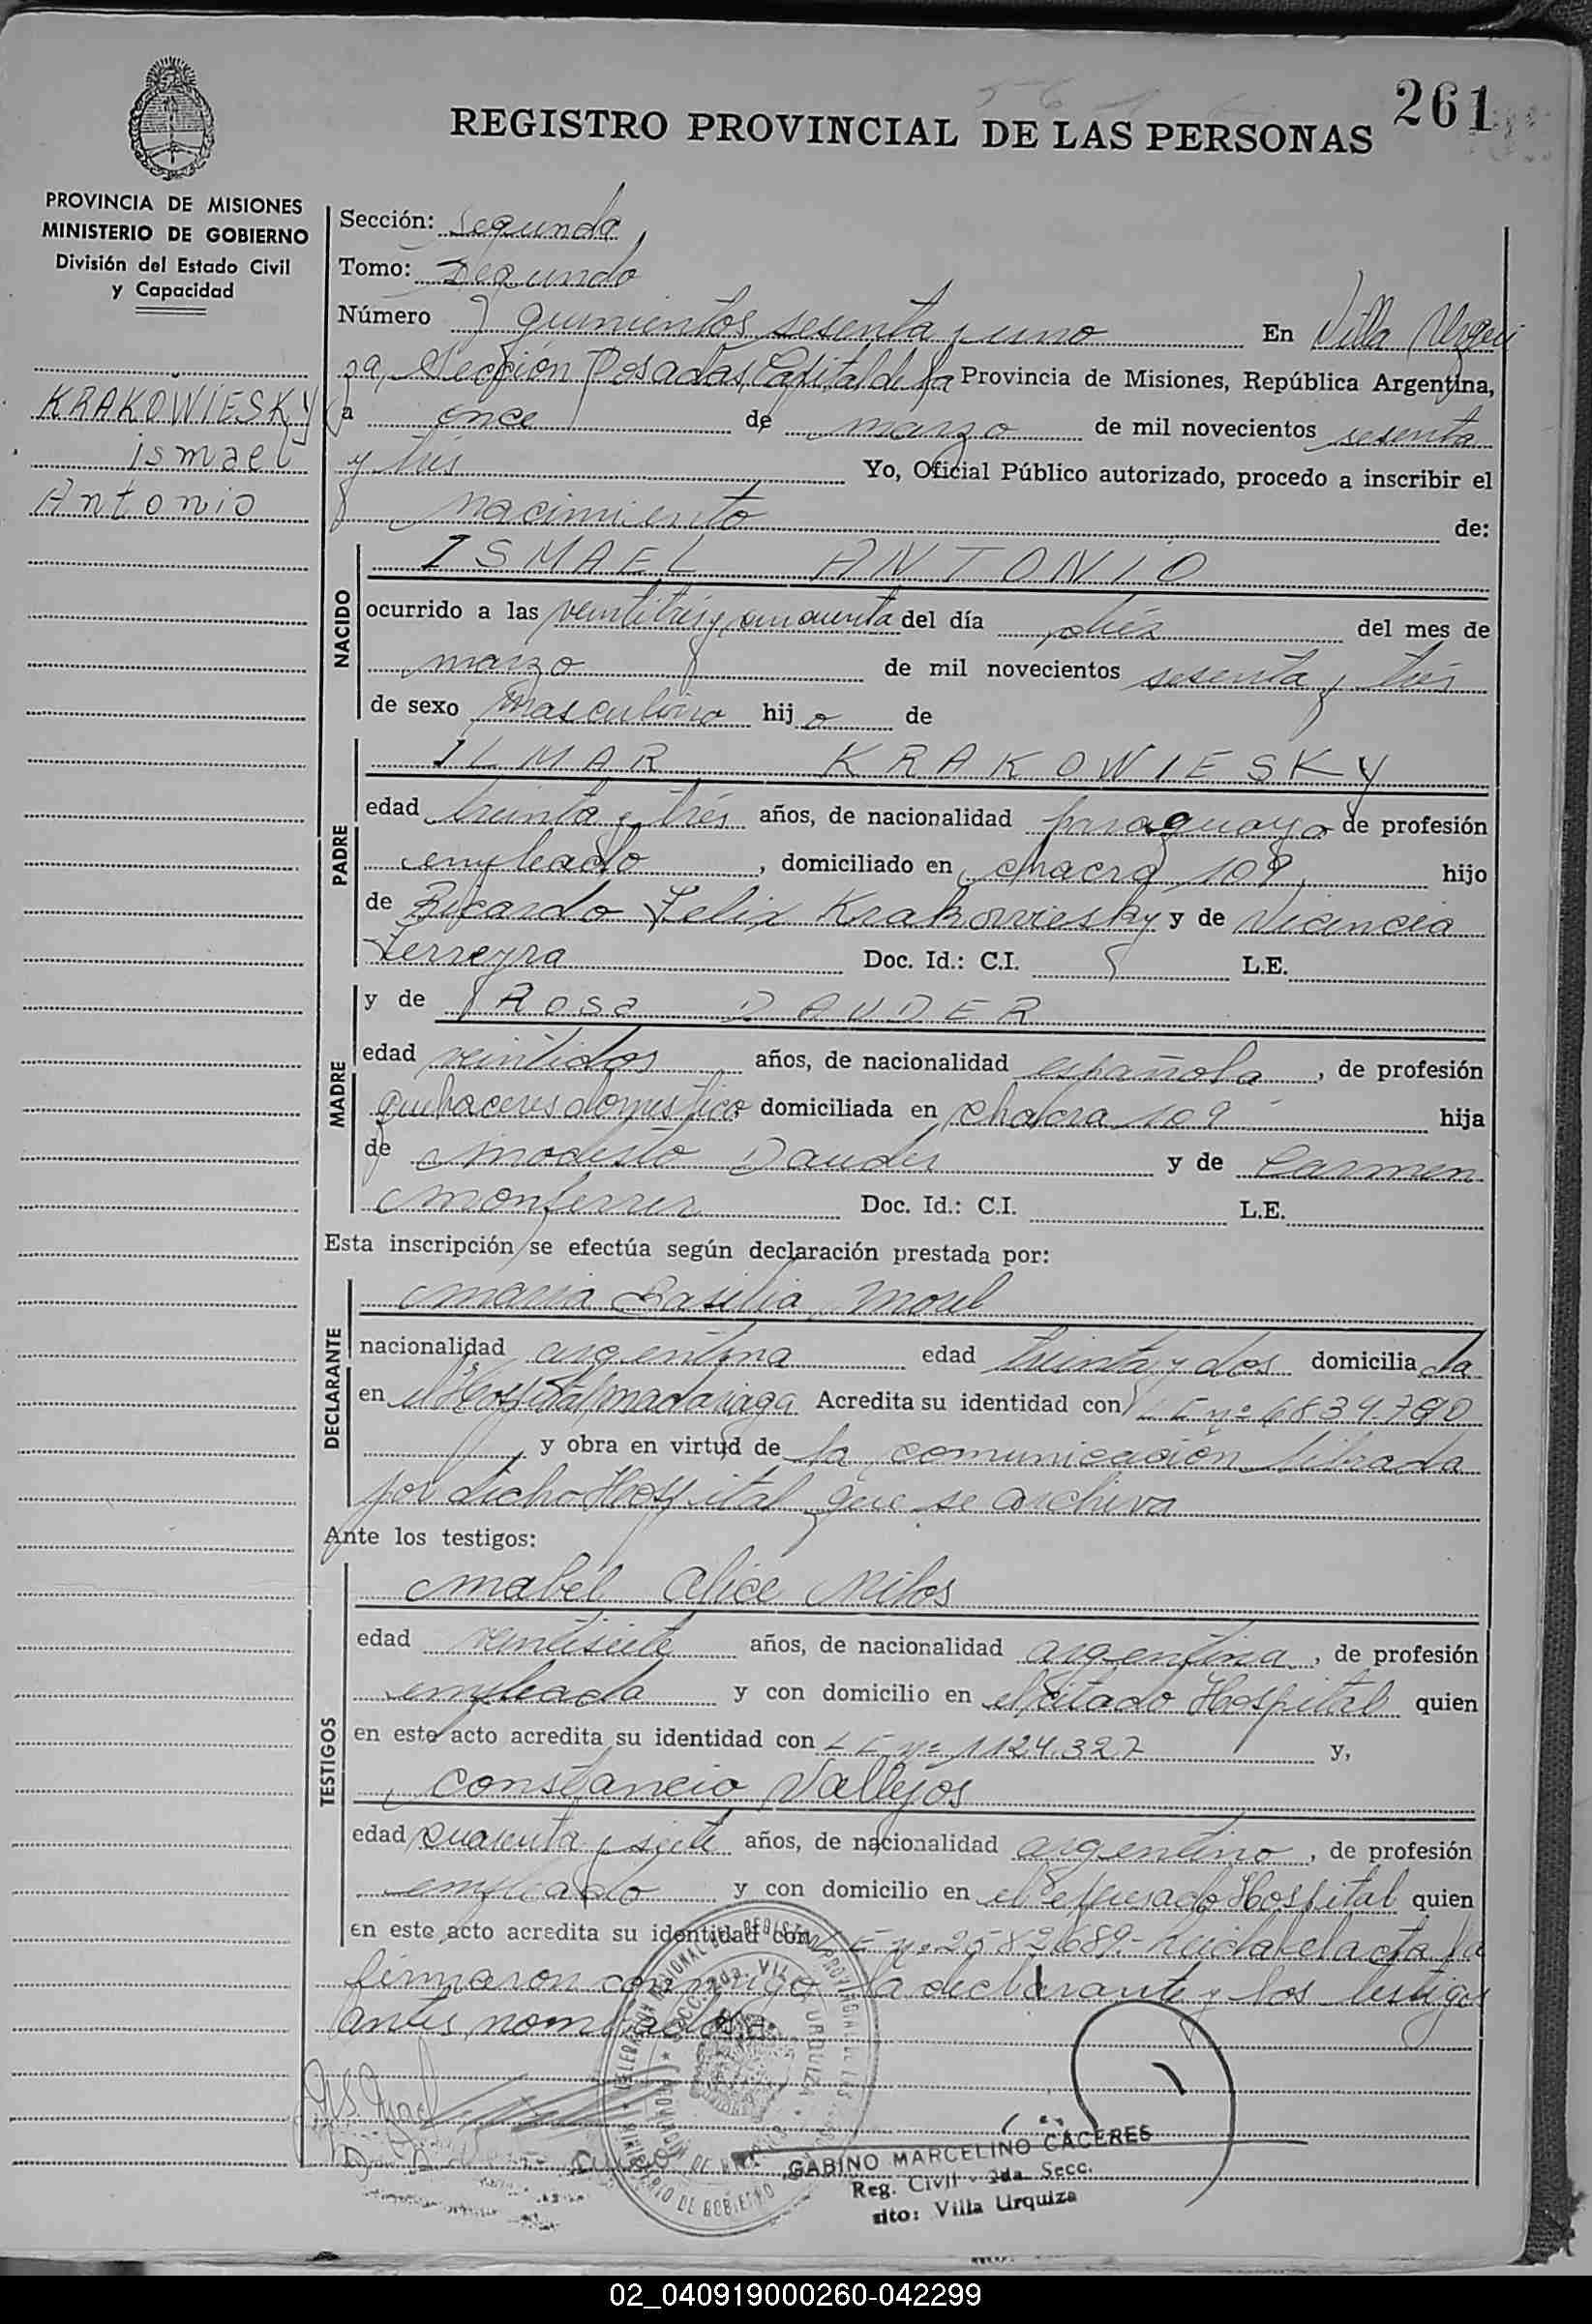 261
REGISTRO PROVINCIAL DE LAS PERSONAS
PROVINCIA DE MISIONES
MINISTERIO DE GOBIERNO
División del Estado Civil
y Capacidad
KRAKOWIESKY
ismael
Antonio
Sección: Segunda
Tomo: Segundo
Número quinientos sesenta y uno En Villa Urqui
za, Sección Posadas, Capital de la Provincia de Misiones, República Argentina,
a once de marzo de mil novecientos sesenta
y trés Yo, Oficial Público autorizado, procedo a inscribir el
nacimiento de:
NACIDO
ISMAEL ANTONIO
ocurrido a las veintitrés y cincuenta del día diéz del mes de
marzo de mil novecientos sesenta y trés
de sexo masculino hijo de
PADRE
ILMAR KRAKOWIESKY
edad treinta y trés años, de nacionalidad paraguayo de profesión
empleado, domiciliado en chacra 109, hijo
de Ricardo Felix Krakowiesky y de Vicencia
Ferreyra Doc. Id.: C.I. L.E.
MADRE
y de Rosa DAUDER
edad veintidos años, de nacionalidad española, de profesión
quehaceres domestico domiciliada en chacra 109 hija
de Modesto Dauder y de Carmen
Monferrer Doc. Id.: C.I. L.E.
Esta inscripción se efectúa según declaración prestada por:
DECLARANTE
Maria Basilia Morel
nacionalidad argentina edad treinta y dos domiciliada
en el Hospital Madariaga Acredita su identidad con
y obra en virtud de la comunicación librada
por dicho Hospital que se archiva
Ante los testigos:
TESTIGOS
Mabel Alice Milos
edad veintisiete años, de nacionalidad argentina, de profesión
empleada y con domicilio en el citado Hospital quien
en este acto acredita su identidad con L E nº 1124.327 y,
Constancio Vallejos
edad cuarenta y siete años, de nacionalidad argentino, de profesión
empleado y con domicilio en el expresado Hospital quien
en este acto acredita su identidad con L E nº 2582689.- Leida el acta la
firmaron conmigo la declarante y los testigos
antes nombrados.
GABINO MARCELINO CACERES
Reg. Civil - 2da. Secc.
sito: Villa Urquiza
02_040919000260-042299